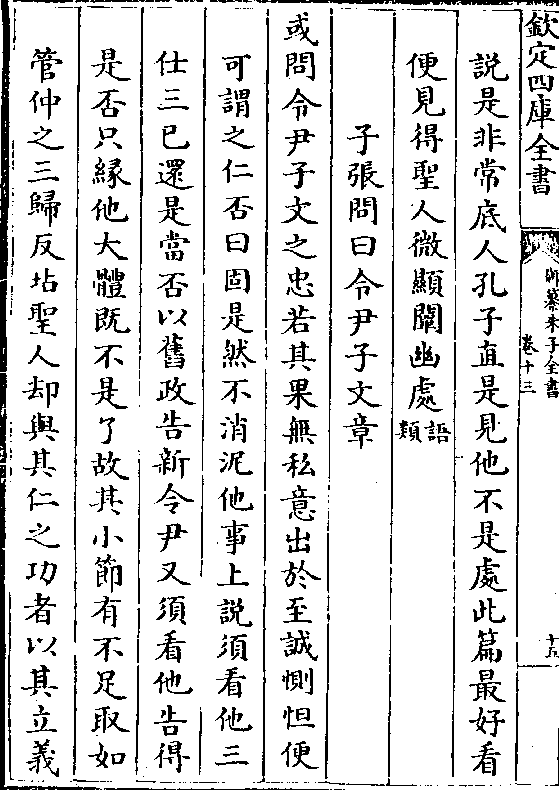 欽定四庫全書
御纂朱子全書
卷十三
十五
說是非常底人孔子直是見他不是處此篇最好看
便見得聖人微顯闡幽處語類
子張問曰令尹子文章
或問令尹子文之忠若其果無私意出於至誠惻怛便
可謂之仁否曰固是然不消泥他事上說須看他三
仕三已還是當否以舊政告新令尹又須看他告得
是否只緣他大體既不是了故其小節有不足取如
管仲之三歸反坫聖人却與其仁之功者以其立義